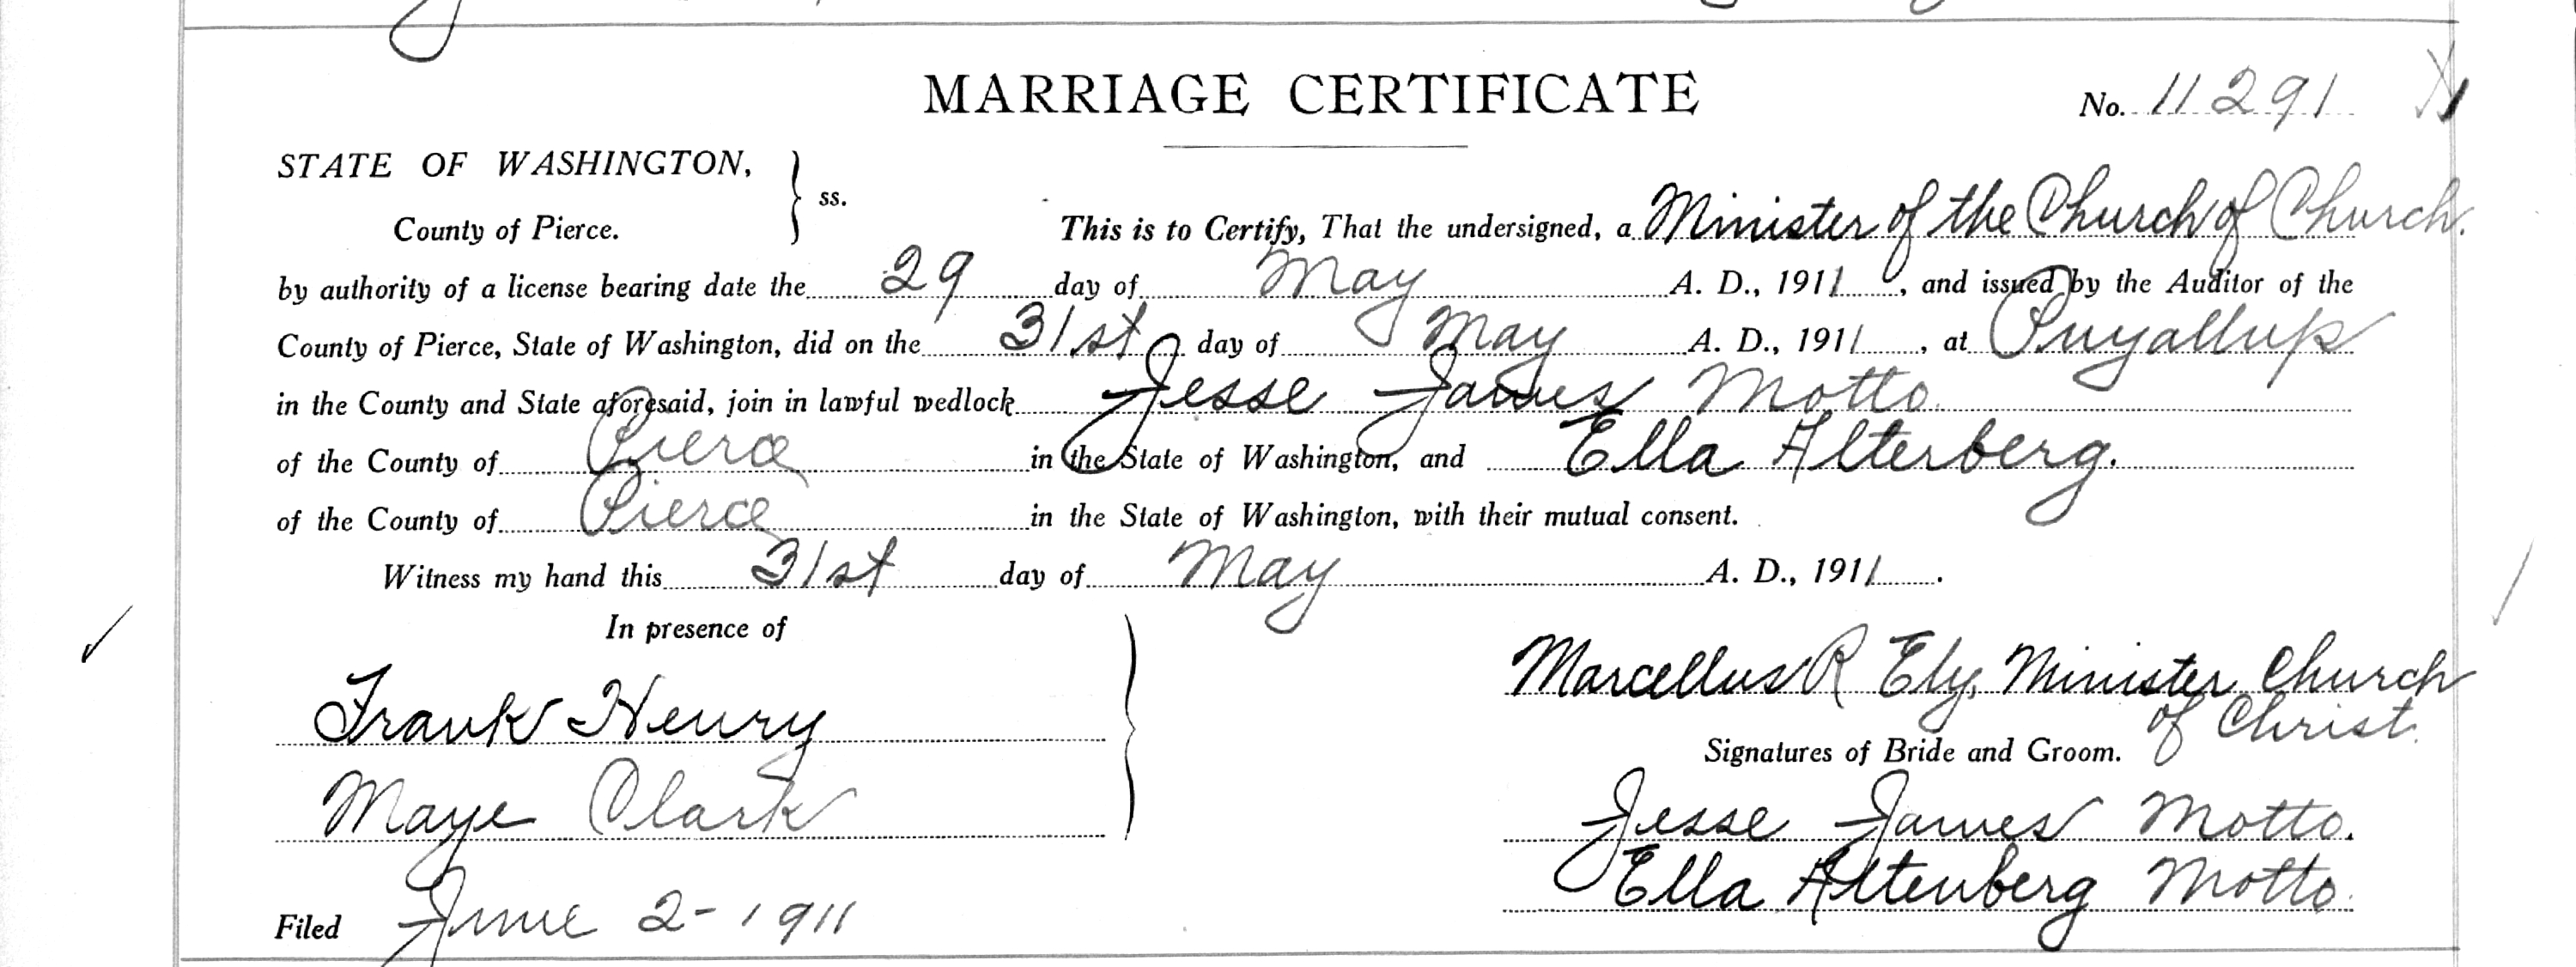 MARRIAGE CERTIFICATE
No. 11291
STATE OF WASHINGTON,
County of Pierce.
ss.
This is to Certify, That the undersigned, a Minister of the Church of Church.
by authority of a license bearing date the 29 day of May A. D., 1911, and issued by the Auditor of the
County of Pierce, State of Washington, did on the 31st day of May A. D., 1911, at Puyallup
in the County and State aforesaid, join in lawful wedlock Jesse James Motto
of the County of Pierce in the State of Washington, and Ella Alterberg.
of the County of Pierce in the State of Washington, with their mutual consent.
Witness my hand this 31st day of May A. D., 1911.
In presence of
Frank Henry
Maye Clark
Marcellus R Ely, Minister Church
of Christ.
Signatures of Bride and Groom.
Jesse James Motto.
Ella Altenberg Motto.
Filed June 2-1911